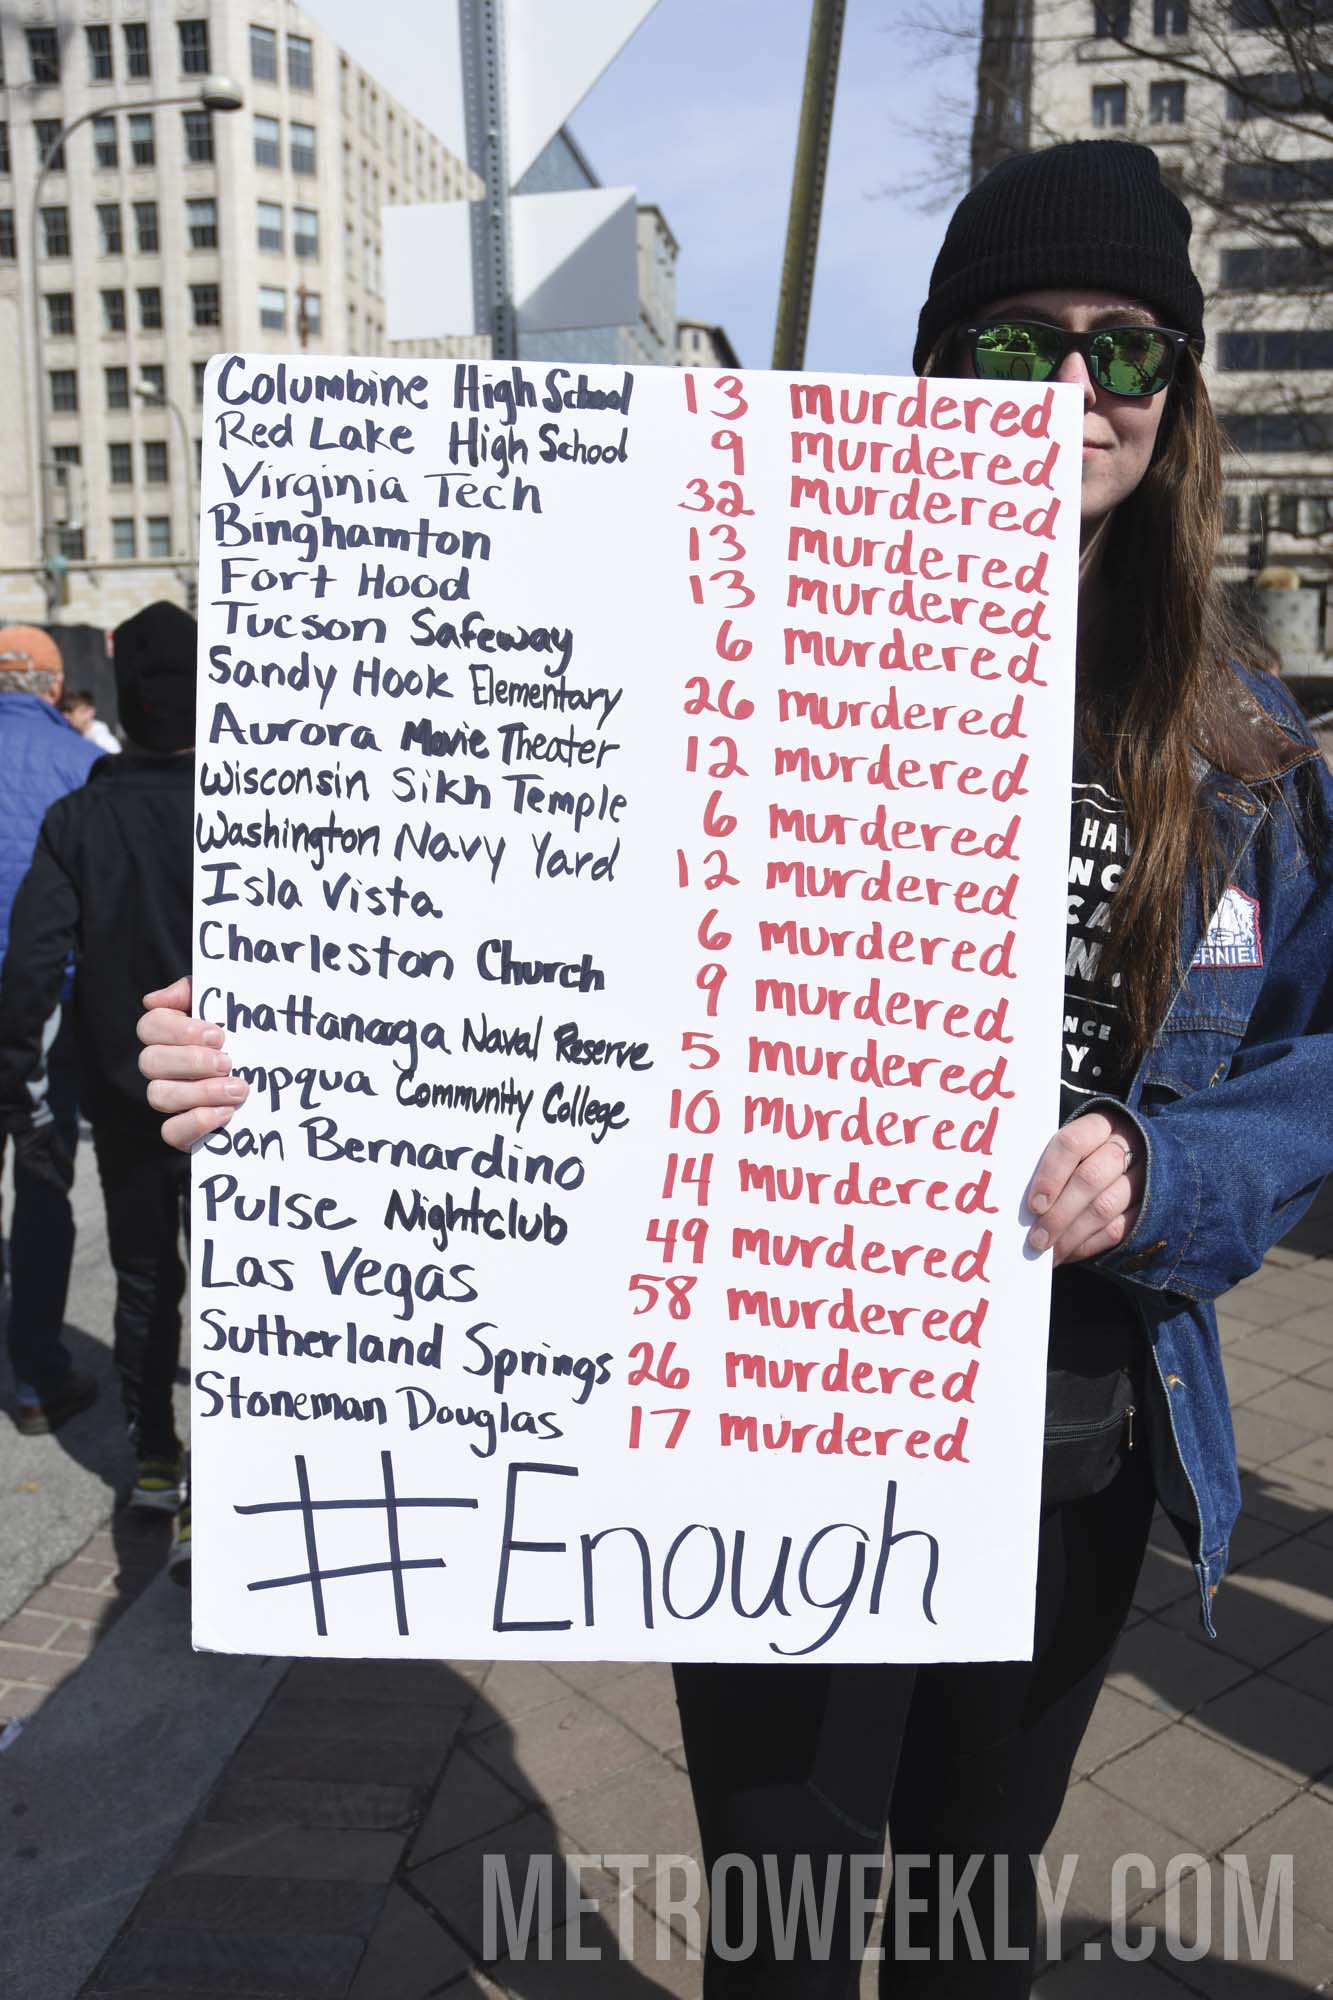 Columbine High School 13 murdered
Red Lake High School 9 murdered
Virginia Tech 32 murdered
Binghamton 13 murdered
Fort Hood 13 murdered
Tucson Safeway 6 murdered
Sandy Hook Elementary 26 murdered
Aurora Movie Theater 12 murdered
Wisconsin Sikh Temple 6 murdered
Washington Navy Yard 12 murdered
Isla Vista 6 murdered
Charleston Church 9 murdered
Chattanooga Naval Reserve 5 murdered
mpqua Community College 10 murdered
San Bernardino 14 murdered
Pulse Nightclub 49 murdered
Las Vegas 58 murdered
Sutherland Springs 26 murdered
Stoneman Douglas 17 murdered
#Enough
HA
NC
CA
N.
NCE
Y.
ERNIE!
METROWEEKLY.COM